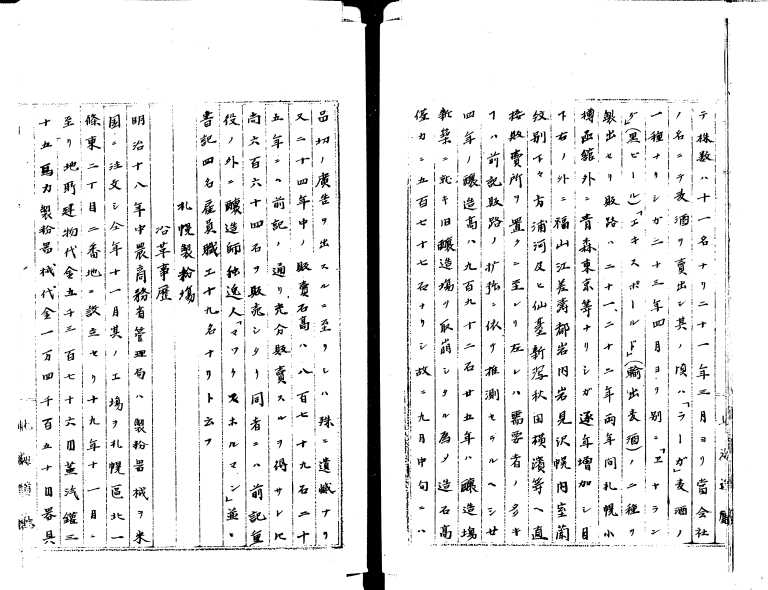 テ株数ハ十一名ナリ二十一年三月ヨリ當会社
ノ名ニテ麦酒ヲ賣出シ其ノ頃ハ「ラーガ」麦酒ノ
一種ナリシガ二十三年四月ヨリ別ニ「ヱキラン
ダ」(黒ビール)「エキスポールド」(輸出麦酒)ノ二種ヲ
製出セリ販路ハ二十一、二十二年両年間札幌小
樽函館外ニ青森東京等ナリシガ逐年増加シ目
下右ノ外ニ福山江差壽都岩内岩見沢幌内室蘭
紋別下々方浦河及ヒ仙臺新潟秋田横濱等ヘ直
接販賣所ヲ置クニ至レリ左レハ需要者ノ多キ
コハ前記販路ノ扩張ニ依リ推測セラルヘシ廿
四年ノ釀造高ハ九百九十二石廿五年ハ釀造場
新築ニ於キ旧釀造場ヲ取崩シタル為メ造石高
僅カニ五百七十七石ナリシ故ニ九月中旬ニハ
品切ノ廣告ヲ出スルニ至リシハ殊ニ遺憾ナリ
又二十四年中ノ販賣石高ハ八百七十九石二十
五年ニハ前記ノ通リ充分販賣スルヲ得サレ圧
尚六百六十四石ヲ販売シタリ同者ニハ前記重
役ノ外ニ釀造師独逸人「マフクスホルマン」並ニ
書記四名雇員職工十九名ナリト云フ
札幌製粉場
沿革事歴
明治十八年中農商務省管理局ハ製粉器械ヲ米
国ニ注文シ仝年十一月其ノ工場ヲ札幌區北一
條東二丁目二番地ニ設立セリ十九年十一月ニ
至リ地所建物代金五千三百七十六円蒸汽鑵二
十五馬力製粉器械代金一万四千百五十円器具